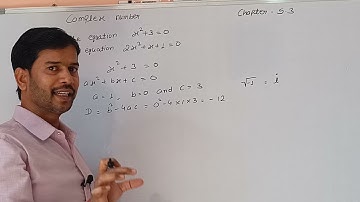 Complex Number
Chapter - 5.3
the equation x² + 3 = 0
equation 2x² + x + 1 = 0
x² + 3 = 0
ax² + bx + c = 0
a = 1, b = 0 and c = 3
D = b² - 4ac = 0² - 4 × 1 × 3 = - 12
√-1 = i